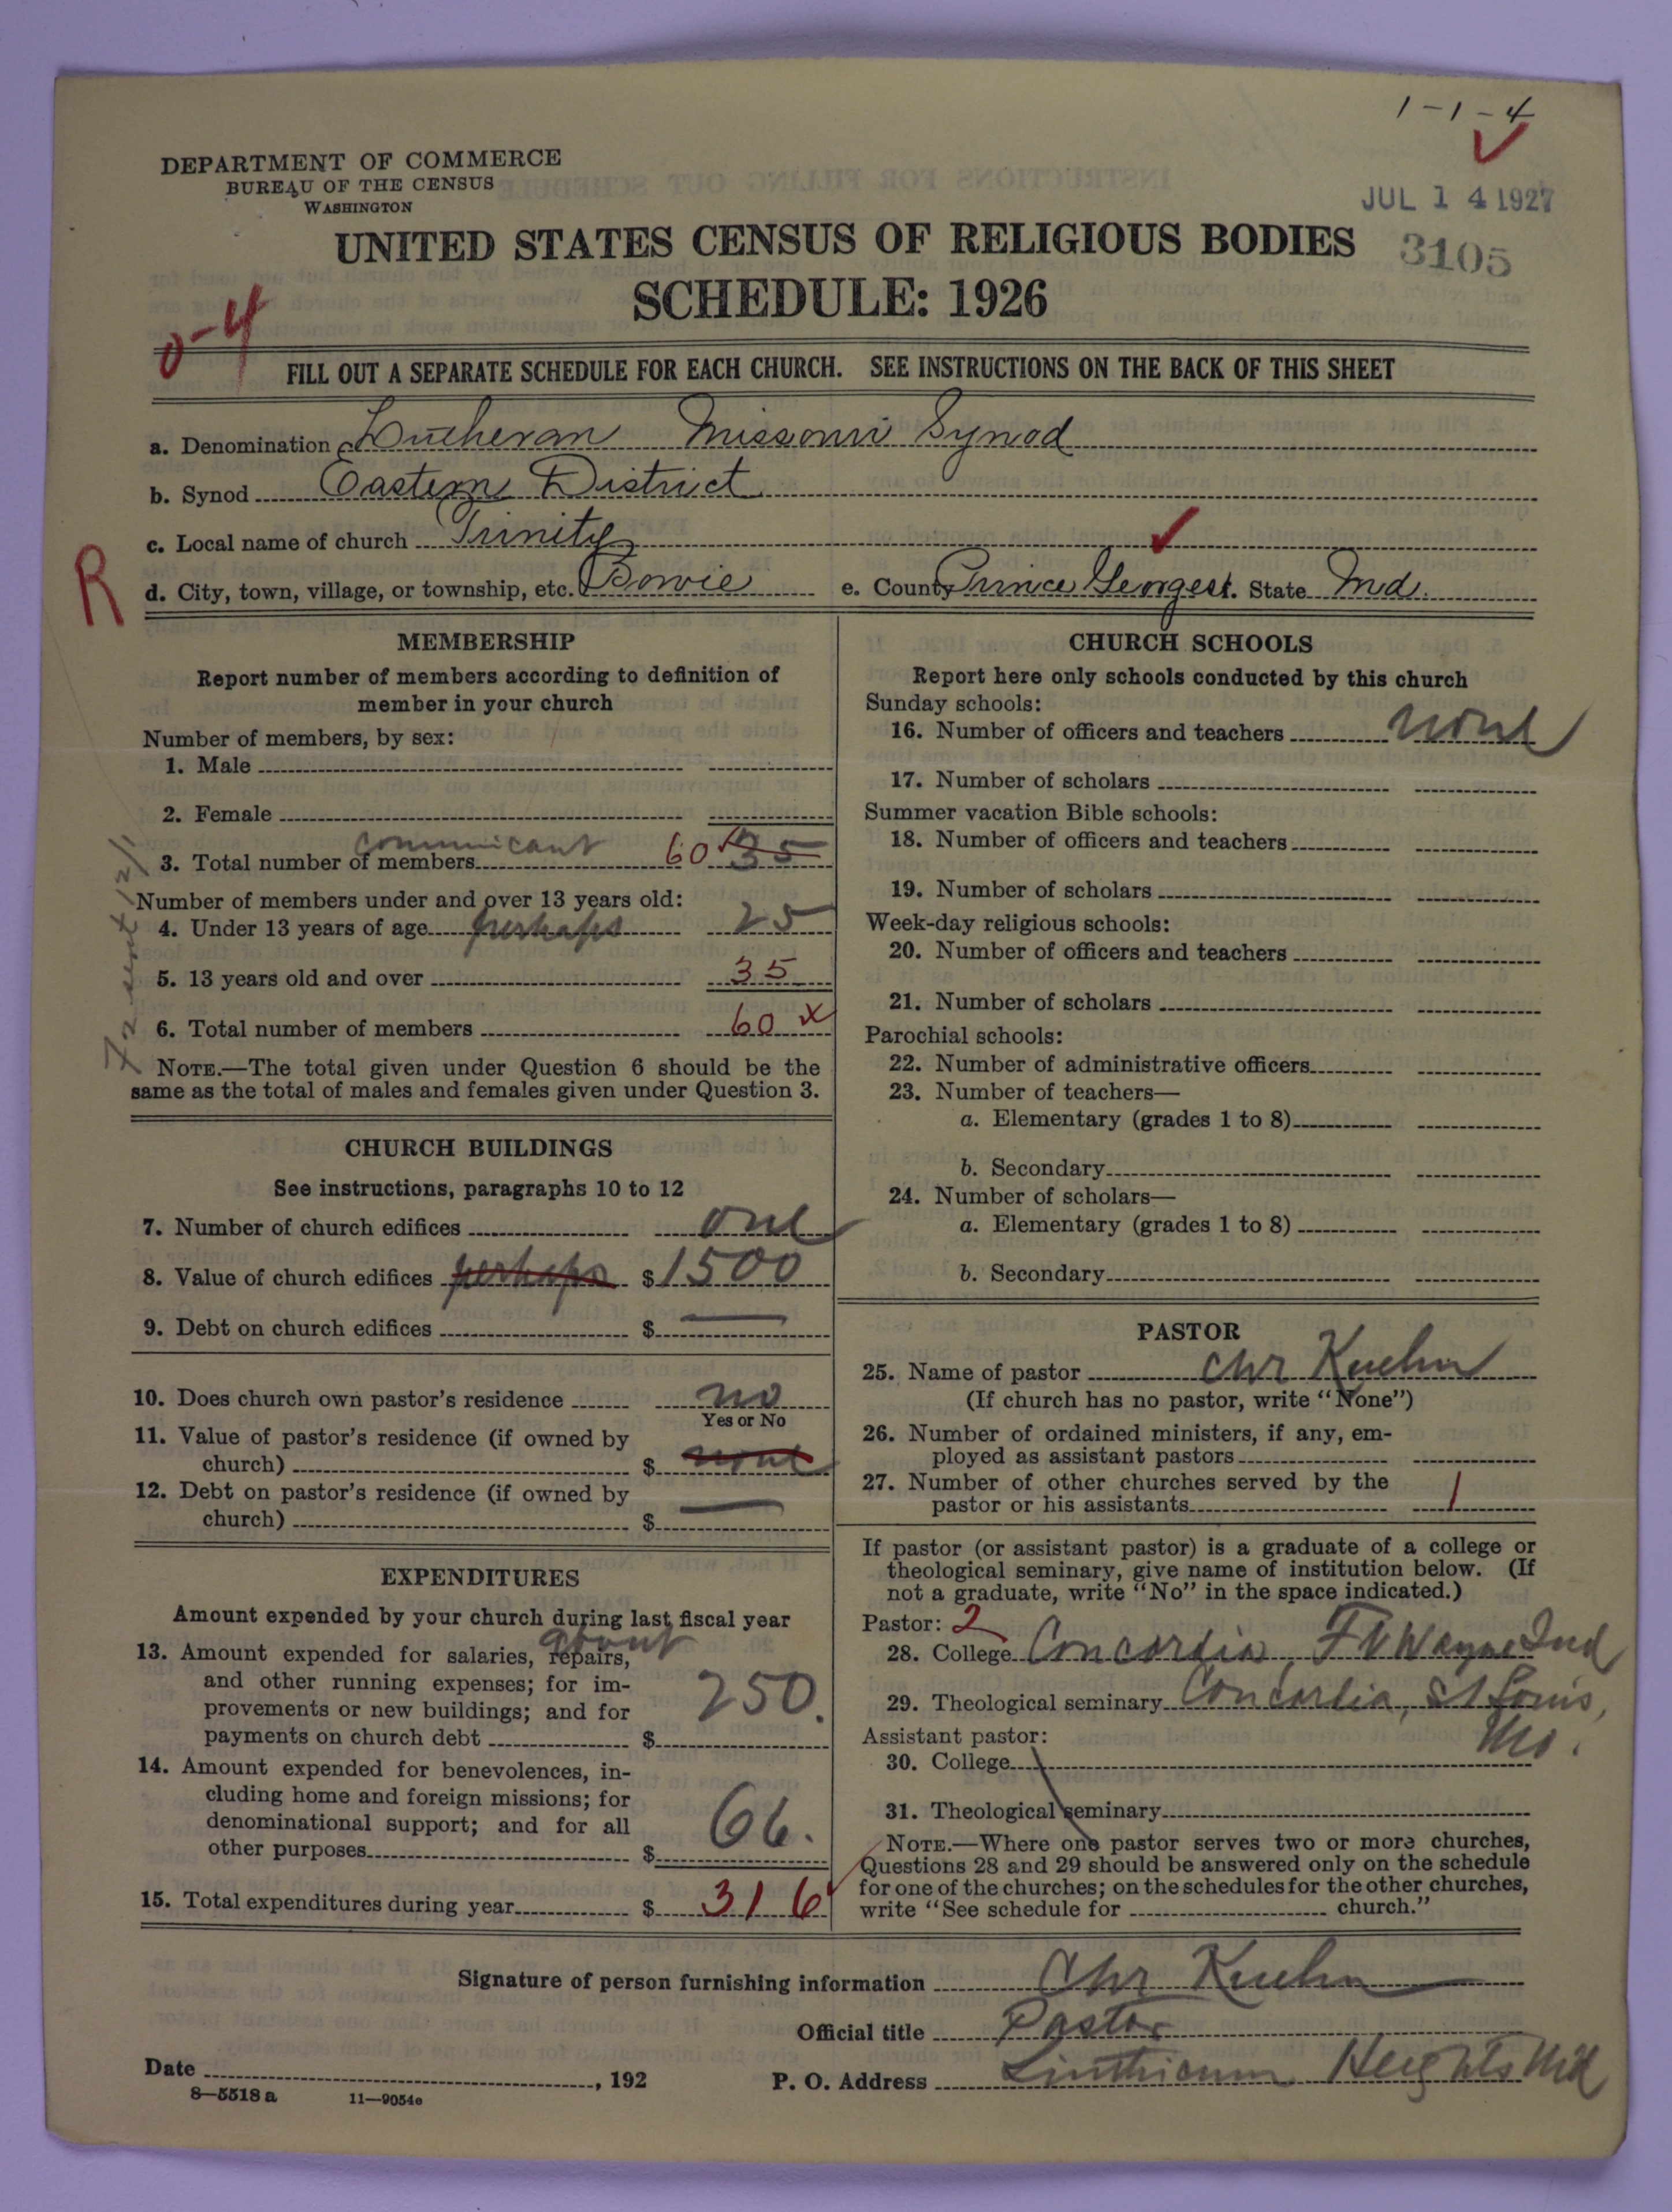 1-1-4
DEPARTMENT OF COMMERCE
BUREAU OF THE CENSUS
WASHINGTON
JUL 14 1927
UNITED STATES CENSUS OF RELIGIOUS BODIES
3105
SCHEDULE: 1926
0-4
FILL OUT A SEPARATE SCHEDULE FOR EACH CHURCH. SEE INSTRUCTIONS ON THE BACK OF THIS SHEET
a. Denomination Lutheran Missouri Synod
b. Synod Eastern District
c. Local name of church Trinity
R
d. City, town, village, or township, etc. Bowie e. County Prince Georges. State Md.
MEMBERSHIP
Report number of members according to definition of
member in your church
Number of members, by sex:
1. Male
2. Female
communicant
3. Total number of members 60 35
Number of members under and over 13 years old:
4. Under 13 years of age perhaps 25
5. 13 years old and over 35
6. Total number of members 60 x
NOTE.—The total given under Question 6 should be the
same as the total of males and females given under Question 3.
CHURCH BUILDINGS
See instructions, paragraphs 10 to 12
7. Number of church edifices one
8. Value of church edifices perhaps $1500
9. Debt on church edifices $ —
10. Does church own pastor's residence no
Yes or No
11. Value of pastor's residence (if owned by
church) $ none
12. Debt on pastor's residence (if owned by
church) $ —
EXPENDITURES
Amount expended by your church during last fiscal year
about
13. Amount expended for salaries, repairs,
and other running expenses; for im-
provements or new buildings; and for
payments on church debt $ 250.
14. Amount expended for benevolences, in-
cluding home and foreign missions; for
denominational support; and for all
other purposes $ 66.
15. Total expenditures during year $ 316
CHURCH SCHOOLS
Report here only schools conducted by this church
Sunday schools:
16. Number of officers and teachers none
17. Number of scholars
Summer vacation Bible schools:
18. Number of officers and teachers
19. Number of scholars
Week-day religious schools:
20. Number of officers and teachers
21. Number of scholars
Parochial schools:
22. Number of administrative officers
23. Number of teachers—
a. Elementary (grades 1 to 8)
b. Secondary
24. Number of scholars—
a. Elementary (grades 1 to 8)
b. Secondary
PASTOR
25. Name of pastor Chr Kuehn
(If church has no pastor, write "None")
26. Number of ordained ministers, if any, em-
ployed as assistant pastors
27. Number of other churches served by the
pastor or his assistants 1
If pastor (or assistant pastor) is a graduate of a college or
theological seminary, give name of institution below. (If
not a graduate, write "No" in the space indicated.)
Pastor: 2
28. College Concordia, Ft Wayne Ind
29. Theological seminary Concordia, St Louis,
Mo.
Assistant pastor:
30. College
31. Theological seminary
NOTE.—Where one pastor serves two or more churches,
Questions 28 and 29 should be answered only on the schedule
for one of the churches; on the schedules for the other churches,
write "See schedule for church."
Signature of person furnishing information Chr Kuehn
Official title Pastor
Date , 192 P. O. Address Linthicum Heights Md
8—5518 a 11—9054e